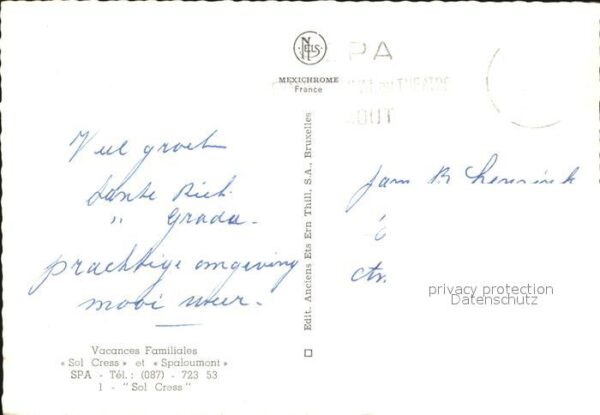 NELS
MEXICHROME
France
SPA
THEATRE
AOUT
Veel groet
tante Riek
" Grada -
prachtige omgeving
mooi weer -
fam B
privacy protection
Datenschutz
Edit. Anciens Ets Ern Thill, S.A., Bruxelles
Vacances Familiales
« Sol Cress » et « Spaloumont »
SPA - Tél.: (087) - 723 53
1 - "Sol Cress"